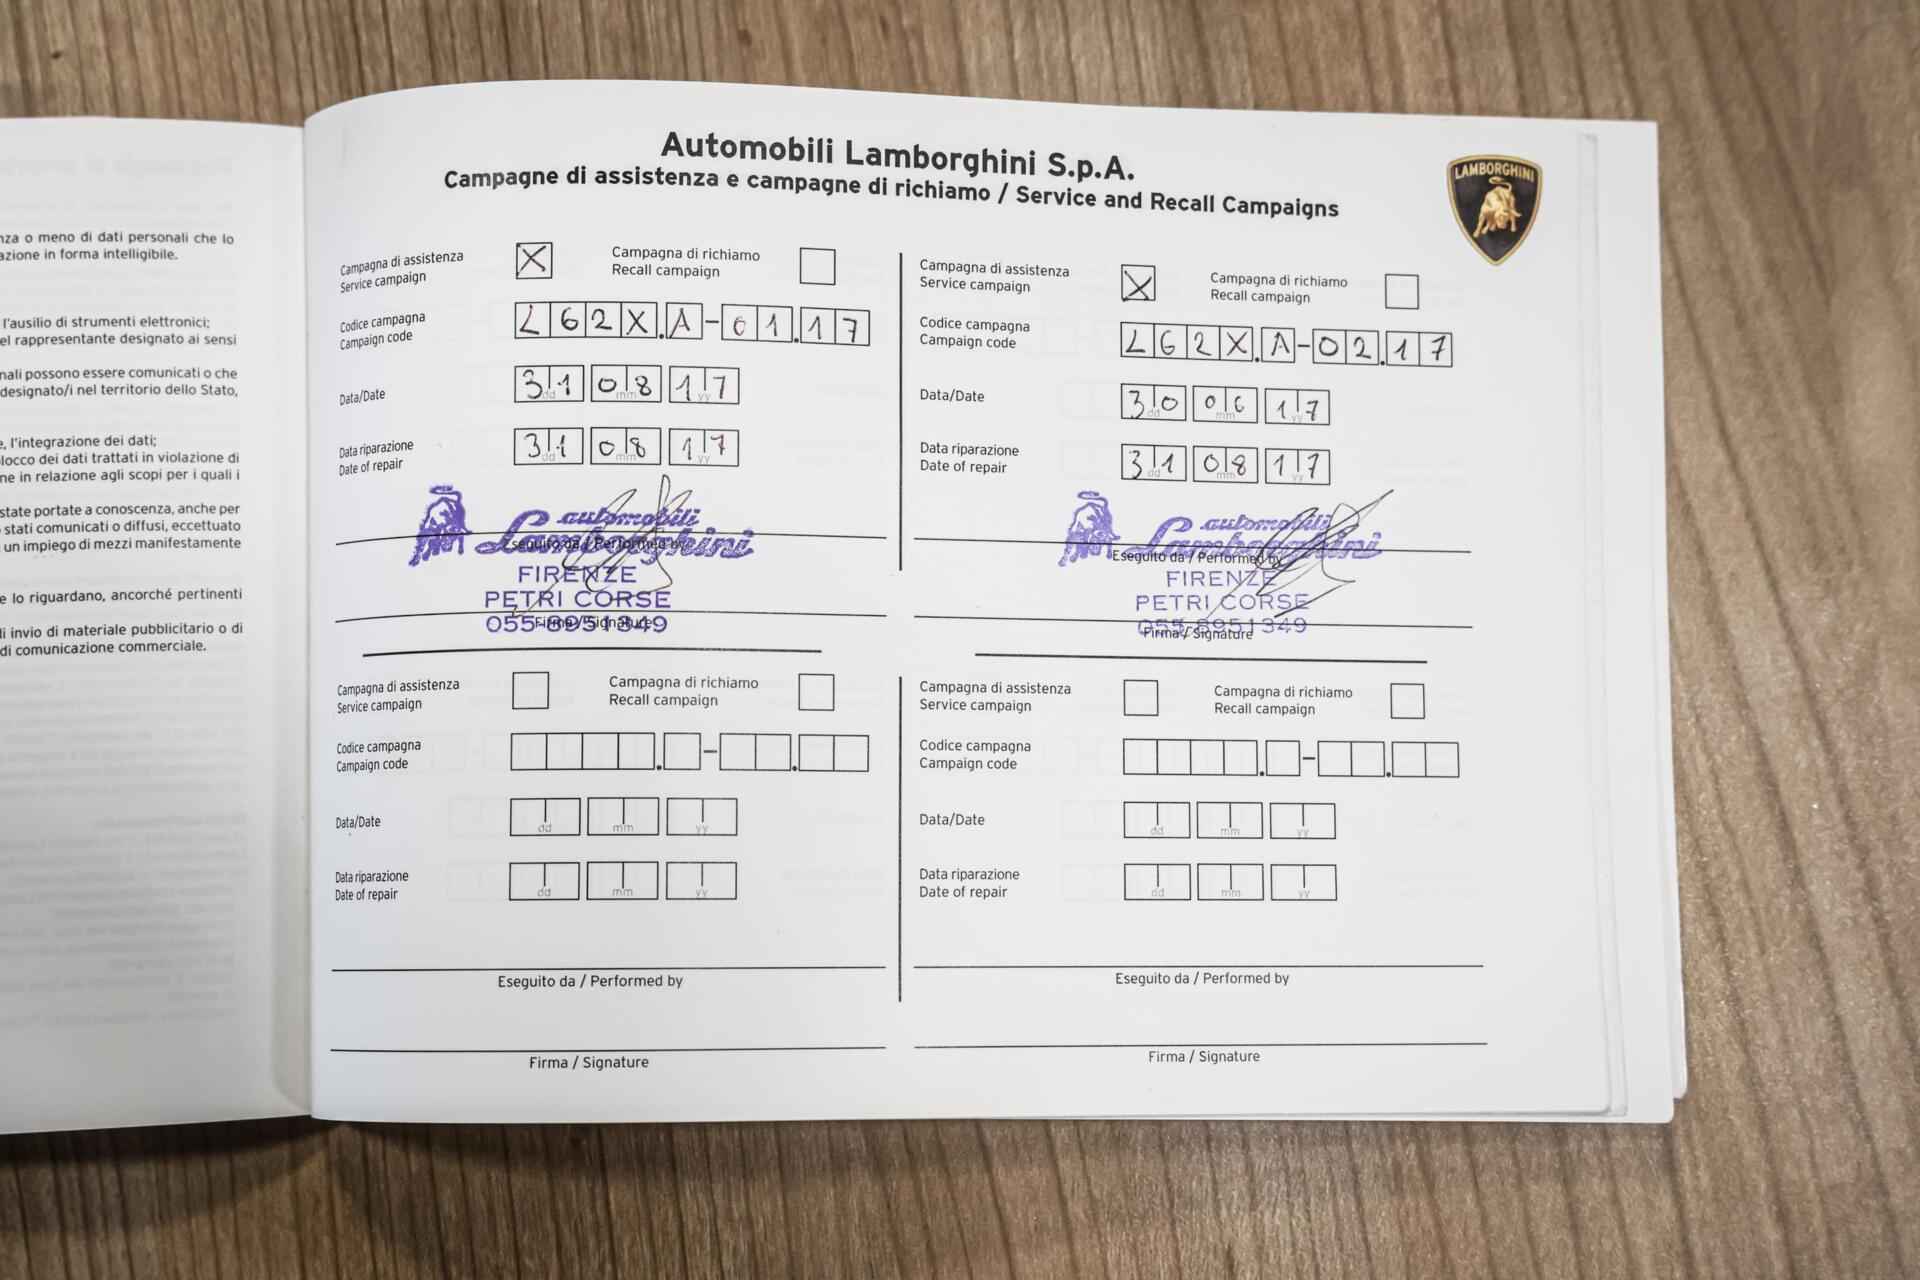 nza o meno di dati personali che lo
azione in forma intelligibile.
l'ausilio di strumenti elettronici;
el rappresentante designato ai sensi
nali possono essere comunicati o che
designato/i nel territorio dello Stato,
e, l'integrazione dei dati;
locco dei dati trattati in violazione di
ne in relazione agli scopi per i quali i
state portate a conoscenza, anche per
stati comunicati o diffusi, eccettuato
un impiego di mezzi manifestamente
e lo riguardano, ancorché pertinenti
li invio di materiale pubblicitario o di
di comunicazione commerciale.
Automobili Lamborghini S.p.A.
Campagne di assistenza e campagne di richiamo / Service and Recall Campaigns
LAMBORGHINI
Campagna di assistenza
Service campaign
X
Campagna di richiamo
Recall campaign
Codice campagna
Campaign code
L62X.A-01.17
Data/Date
31 08 17
dd mm yy
Data riparazione
Date of repair
31 08 17
dd mm yy
automobili
Lamborghini
Eseguito da / Performed by
FIRENZE
PETRI CORSE
055-8951349
Firma / Signature
Campagna di assistenza
Service campaign
X
Campagna di richiamo
Recall campaign
Codice campagna
Campaign code
L62X.A-02.17
Data/Date
30 06 17
dd mm yy
Data riparazione
Date of repair
31 08 17
dd mm yy
automobili
Lamborghini
Eseguito da / Performed by
FIRENZE
PETRI CORSE
055-8951349
Firma / Signature
Campagna di assistenza
Service campaign
Campagna di richiamo
Recall campaign
Codice campagna
Campaign code
. - .
Data/Date
dd mm yy
Data riparazione
Date of repair
dd mm yy
Eseguito da / Performed by
Firma / Signature
Campagna di assistenza
Service campaign
Campagna di richiamo
Recall campaign
Codice campagna
Campaign code
. - .
Data/Date
dd mm yy
Data riparazione
Date of repair
dd mm yy
Eseguito da / Performed by
Firma / Signature